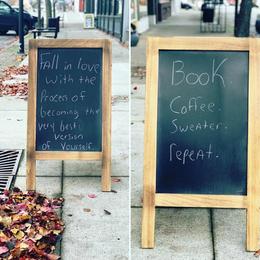 Fall in love
with the
Process of
becoming the
very best
version
of yourself.
Book
Coffee.
Sweater.
repeat.